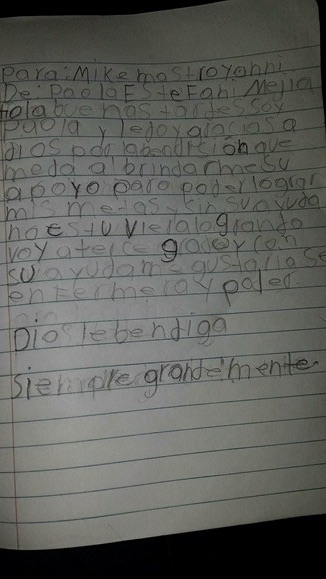 Para: Mike mastroyanni
De: Paola Estefani Mejia
Hola buenas tardes soy
Paola y le doy gracias a
dios por la bendición que
me da al brindarme su
apoyo para poder lograr
mis metas sin su ayuda
no estuviera logrando
voy a terce grado y con
su ayuda me gustaria se
enfermera y poder
Dios le bendiga
siempre grandemente.